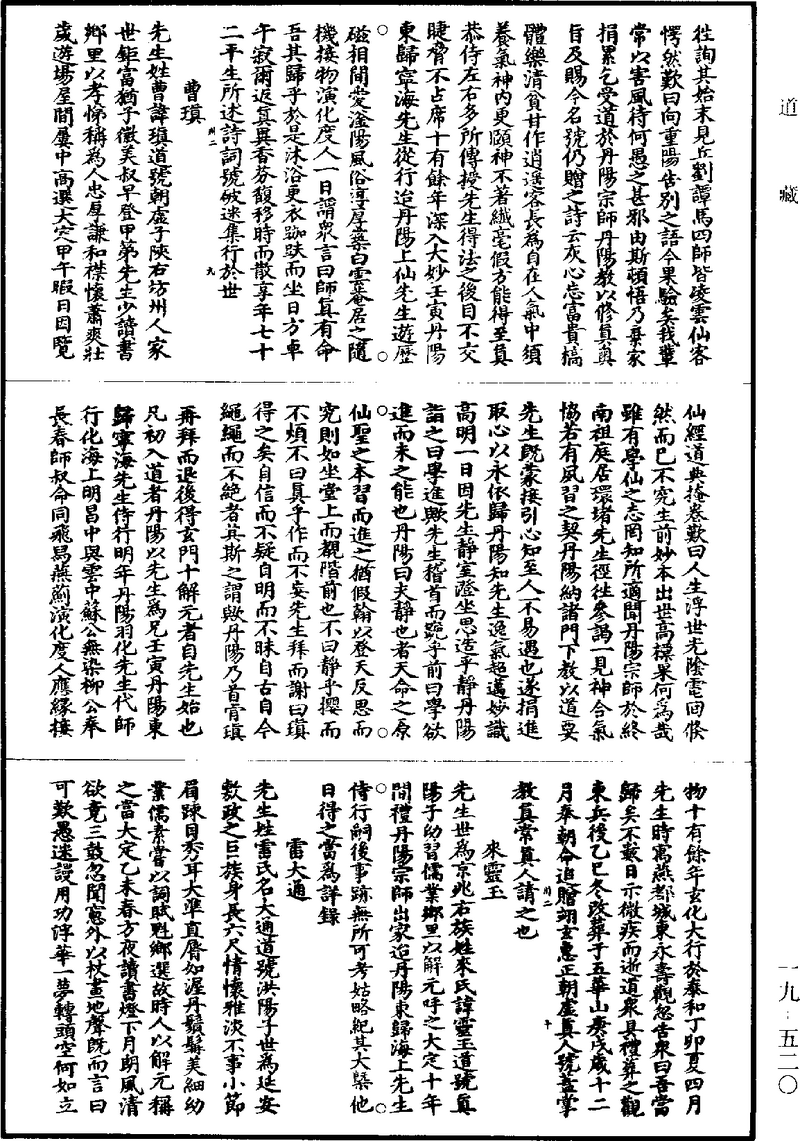 道藏
往詢其始末見丘劉譚馬四師皆凌雲仙客
愕然歎曰向重陽告別之語今果驗矣我輩
常以害風待何愚之甚邪由斯頓悟乃棄家
捐累乞受道於丹陽宗師丹陽教以修真奧
旨及賜今名號仍贈之詩云灰心忘富貴槁
體樂清貧甘作逍遥客長為自在人氣中須
養氣神內更頤神不著纖毫假方能得至真
恭侍左右多所傳授先生得法之後目不交
睫脅不占席十有餘年深入大妙壬寅丹陽
東歸寧海先生從行迨丹陽上仙先生遊歷
磁相間愛滏陽風俗淳厚築白雲菴居之隨
機接物演化度人一日謂衆言曰師真有命
吾其歸乎於是沐浴更衣趺而坐日方卓
午寂爾返真異香芬馥移時而散享年七十
二平生所述詩詞號破迷集行於世
曹瑱
先生姓曹諱瑱道號朝虛子陝右坊州人家
世鉅富猶子徵美叔早登甲第先生少讀書
鄉里以孝悌稱為人忠厚謙和襟懷蕭爽壯
歲遊場屋間屢中高選大定甲午暇日因覽
仙經道典掩卷歎曰人生浮世光陰電回倏
然而已不究生前妙本出世高標果何為哉
雖有學仙之志罔知所適聞丹陽宗師於終
南祖庭居環堵先生徑往參謁一見神合氣
協若有夙習之契丹陽納諸門下教以道要
先生既蒙接引心知至人不易遇也遂捐進
取心以永依歸丹陽知先生逸氣超邁妙識
高明一日因先生靜室澄坐思造乎靜丹陽
詣之曰學進歟先生稽首而跪乎前曰學欲
進而未之能也丹陽曰夫靜也者天命之原
仙聖之本習而進之猶假翰以登天反思而
究則如坐堂上而覩階前也不曰靜乎攖而
不煩不曰真乎作而不妄先生拜而謝曰瑱
得之矣自信而不疑自明而不昧自古自今
繩繩而不絶者其斯之謂歟丹陽乃首肯瑱
再拜而退後得玄門十解元者自先生始也
凡初入道者丹陽以先生為兄壬寅丹陽東
歸寧海先生侍行明年丹陽羽化先生代師
行化海上明昌中與雲中蘇公無染柳公奉
長春師叔命同飛舃燕薊演化度人應緣接
物十有餘年玄化大行於泰和丁卯夏四月
先生時寓燕都城東永壽觀忽告衆曰吾當
歸矣不數日示微疾而逝道衆具禮葬之觀
東兵後乙巳冬改葬于五華山庚戌歲十二
月奉朝命追贈翊玄惠正朝虛真人號蓋掌
教真常真人請之也
來靈玉
先生世為京兆右族姓來氏諱靈玉道號真
陽子幼習儒業鄉里以解元呼之大定十年
間禮丹陽宗師出家迨丹陽東歸海上先生
侍行嗣後事跡無所可考姑略紀其大槩他
日得之當為詳錄
雷大通
先生姓雷氏名大通道號洪陽子世為延安
敷政之巨族身長六尺情懷雅淡不事小節
眉疎目秀耳大準直脣如渥丹鬚髯美細幼
業儒素嘗以詞賦魁鄉選故時人以解元稱
之當大定乙未春方夜讀書燈下月朗風清
欲竟三鼓忽聞窻外以杖畫地聲既而言曰
可歎愚迷謾用功浮華一夢轉頭空何如立
一九·五二〇